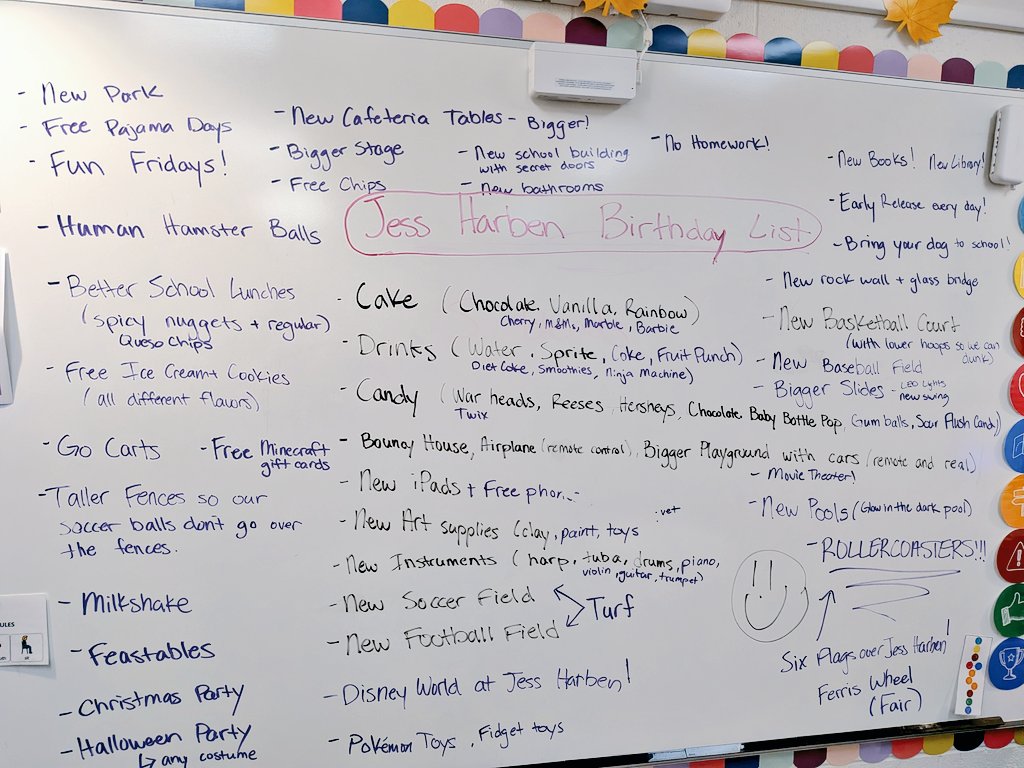 - New Park
- Free Pajama Days
- Fun Fridays!
- Human Hamster Balls
- Better School Lunches
(spicy nuggets + regular)
Queso chips
- Free Ice Cream + Cookies
(all different flavors)
- Go Carts
- Free Minecraft
gift cards
- Taller Fences so our
soccer balls don't go over
the fences.
- Milkshake
- Feastables
- Christmas Party
- Halloween Party
↳ any costume
- New Cafeteria Tables - Bigger!
- Bigger Stage
- Free Chips
- New school building
with secret doors
- New bathrooms
- No Homework!
Jess Harben Birthday List
- Cake (Chocolate. Vanilla, Rainbow)
Cherry, M&Ms, Marble, Barbie
- Drinks (Water, Sprite, Coke, Fruit Punch)
Diet Coke, Smoothies, Ninja Machine)
- Candy (War heads, Reeses, Hersheys, Chocolate. Baby Bottle Pop, Gum balls, Sour Plush Candy)
Twix
- Bouncy House, Airplane (remote control), Bigger Playground with cars (remote and real)
- New iPads + Free
- New Art supplies (clay, paint, toys
- New Instruments (harp, tuba, drums, piano,
violin, guitar, trumpet)
- New Soccer Field
- New Football Field
Turf
- Disney World at Jess Harben!
- Pokémon Toys, Fidget toys
- New Books! New Library!
- Early Release every day!
- Bring your dog to school!
- New rock wall + glass bridge
- New Basketball Court
(with lower hoops so we can
dunk)
- New Baseball Field
- Bigger Slides - LED Lights
new swing
- Movie Theater!
- New Pools (Glow in the dark pool)
- ROLLERCOASTERS!!!
Six Flags over Jess Harben!
Ferris Wheel
(Fair)